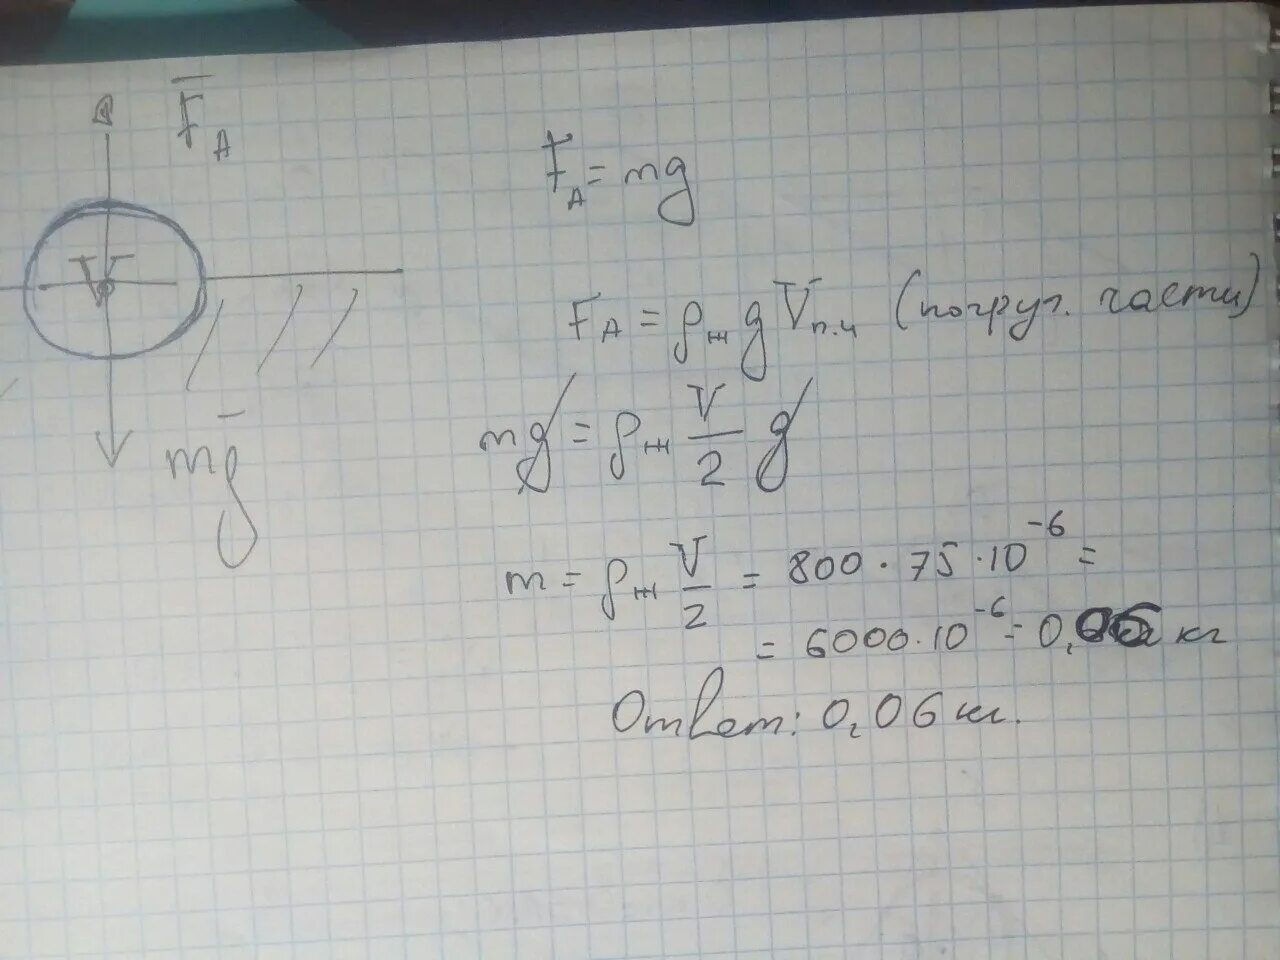 F̅_A
V
mg̅
F_A = mg
F_A = ρ_ж g V_п.ч (погруг. части)
mg = ρ_ж V/2 g
m = ρ_ж V/2 = 800 · 75 · 10^-6 =
= 6000 · 10^-6 = 0,06 кг
Ответ: 0,06 кг.